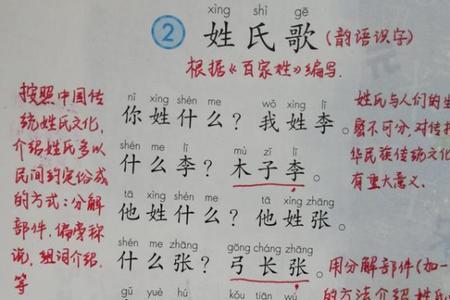 xìng shì gē
② 姓氏歌(韵语识字)
根据《百家姓》编写.
按照中国传
统姓氏文化,
介绍姓氏多以
民间约定俗成
的方式:分解
部件,偏旁称
说,组词介绍,
等
nǐ xìng shén me wǒ xìng lǐ
你姓什么?我姓李。
shén me lǐ mù zǐ lǐ
什么李?木子李。
tā xìng shén me tā xìng zhāng
他姓什么?他姓张。
shén me zhāng gōng cháng zhāng
什么张?弓长张。
gǔ yuè hú kǒu tiān wú
姓氏与人们的生
易不可分,对传
华民族传统文化
有重大意义.
用分解部件(如一
的方法介绍姓